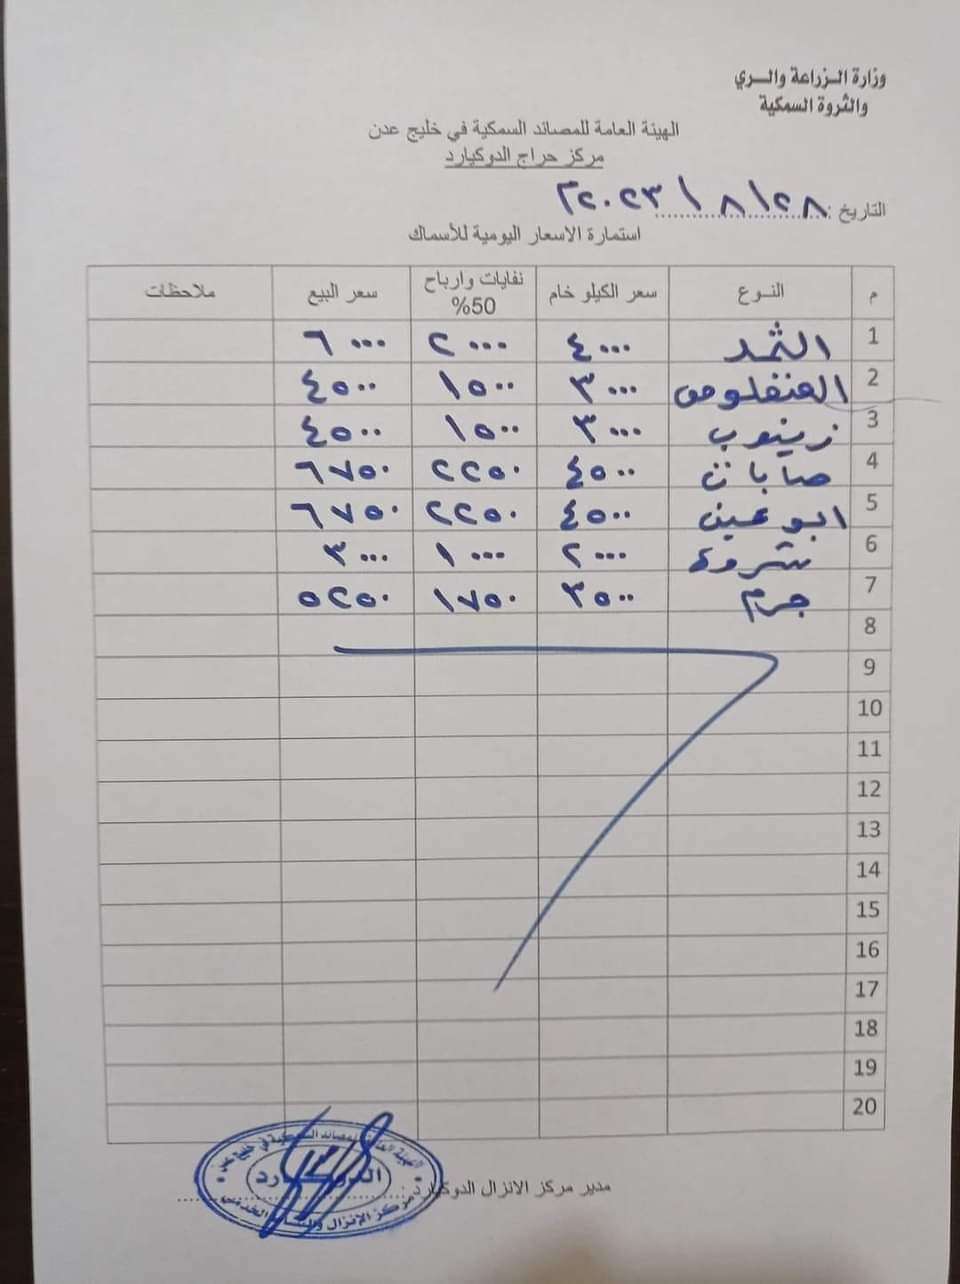 وزارة الزراعة والري
والثروة السمكية
الهيئة العامة للمصائد السمكية في خليج عدن
مركز حراج الدوكيارد
التاريخ: ٢٨ / ٨ / ٢٠٢٣م
استمارة الاسعار اليومية للأسماك
م النوع سعر الكيلو خام نفايات وارباح 50% سعر البيع ملاحظات
1 الثمد ٤٠٠٠ ٢٠٠٠ ٦٠٠٠
2 ٣٠٠٠ ١٥٠٠ ٤٥٠٠
3 زينوب ٣٠٠٠ ١٥٠٠ ٤٥٠٠
4 ٤٥٠٠ ٢٢٥٠ ٦٧٥٠
5 ابو عين ٤٥٠٠ ٢٢٥٠ ٦٧٥٠
6 شروة ٢٠٠٠ ١٠٠٠ ٣٠٠٠
7 جرم ٣٥٠٠ ١٧٥٠ ٥٢٥٠
8
9
10
11
12
13
14
15
16
17
18
19
20
مدير مركز الانزال الدوكيارد
الهيئة العامة للمصائد السمكية في خليج عدن
الدوكيارد
مركز الإنزال